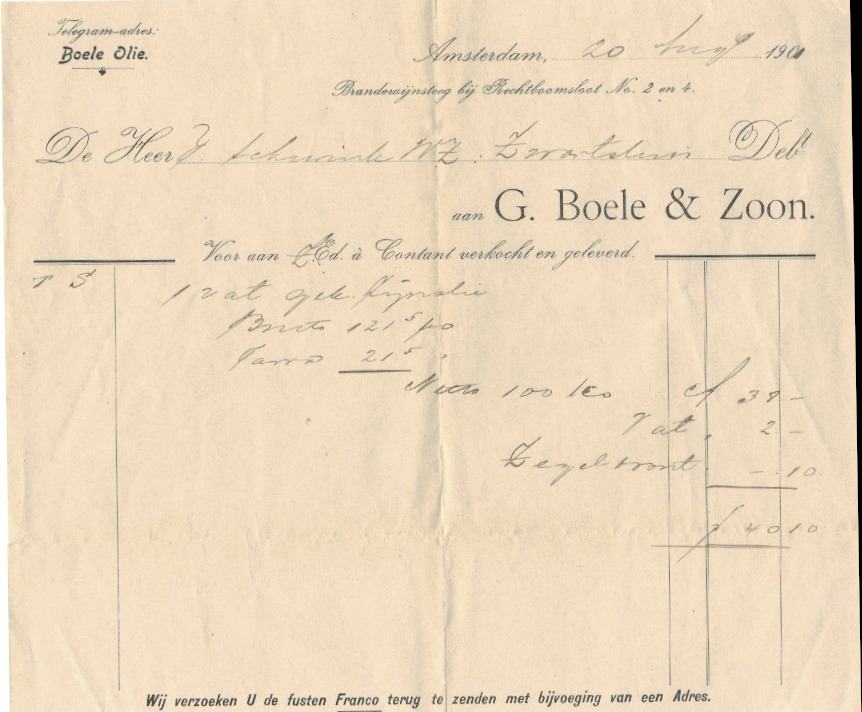 Telegram-adres:
Boele Olie.
Amsterdam, 20 Aug 1901
Brandewijnsteeg bij Rechtboomsloot No. 2 en 4.
De Heer WZ. Zwartsluis Debt
aan G. Boele & Zoon.
Voor aan ZEd. à Contant verkocht en geleverd.
T S 1 vat gek. lijnolie
Bruto 121⁵ ko
Tarra 21⁵ "
Netto 100 ko af 38 -
Vat " 2 -
Zegel - 10
f 40 10
Wij verzoeken U de fusten Franco terug te zenden met bijvoeging van een Adres.